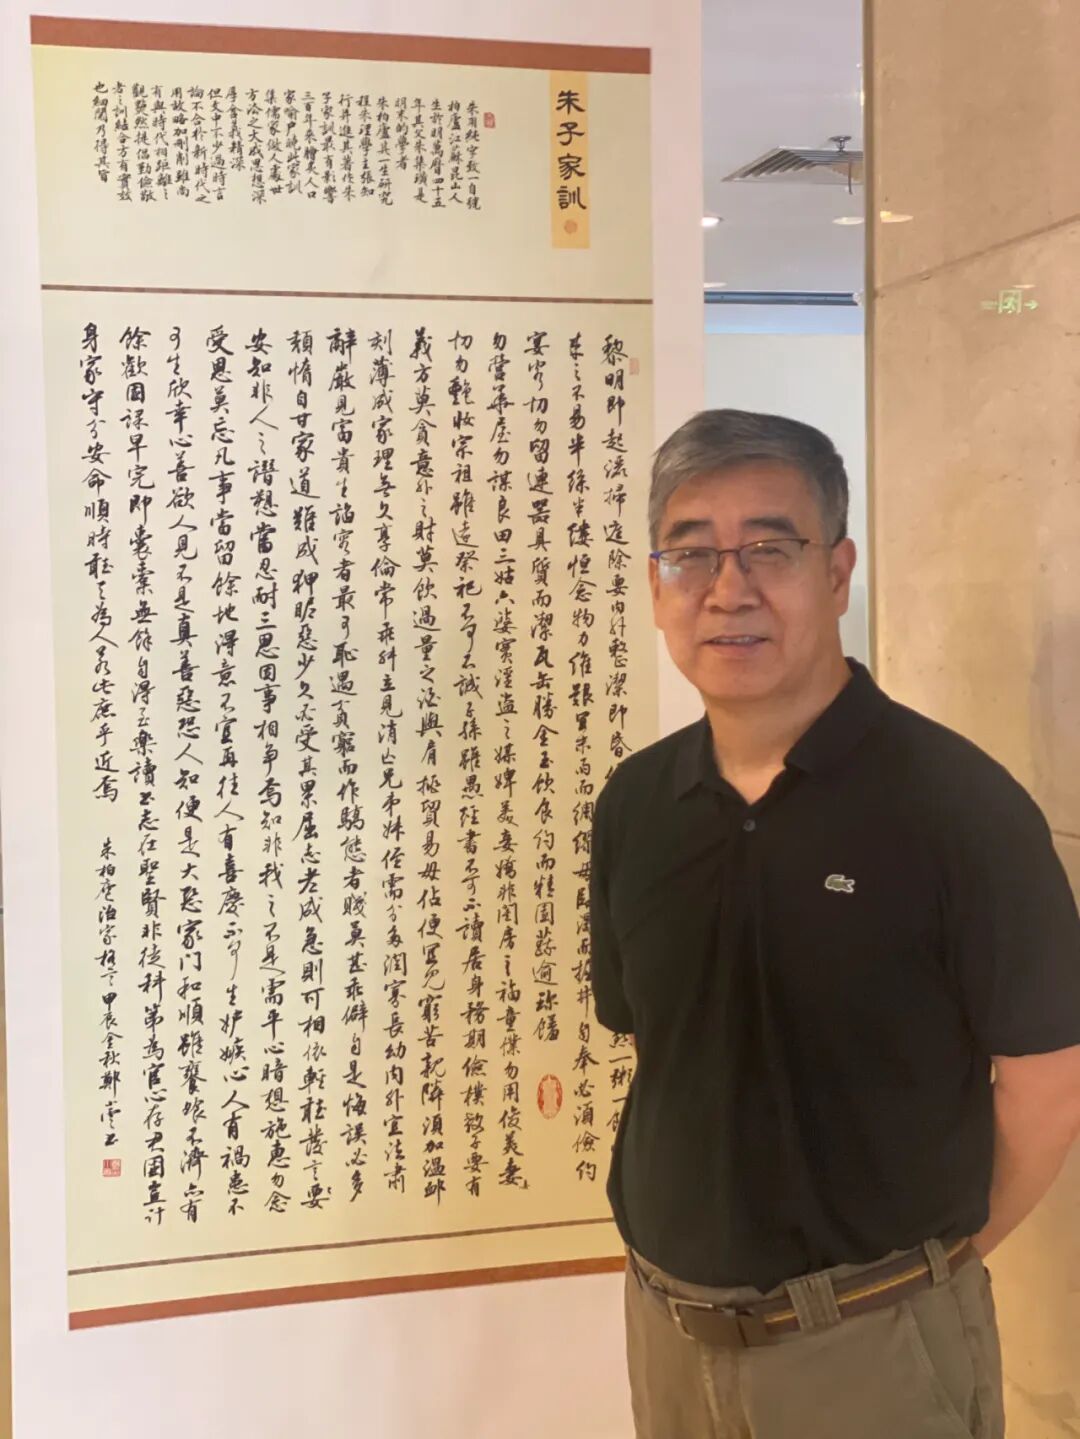 朱子家訓
朱用純字致一自號
柏廬江蘇昆山人
生於明萬曆四十五
年其父朱集璜是
明末的學者
朱柏廬其一生研究
程朱理學主張知
行并進其著作朱
子家訓最有影響
三百年來膾炙人口
家喻戶曉此家訓
集儒家做人處世
方法之大成思想深
厚含義精深
但文中不少過時言
論不合於新時代之
用故略加刪削雖尚
有與時代相距離之
觀點然提倡勤儉敬
者之訓結合方有實效
也細閱乃得其旨
黎明即起洒掃庭除要內外整潔即昏
來之不易半絲半縷恒念物力維艱宜未雨而綢繆毋臨渴而掘井自奉必須儉約
宴客切勿留連器具質而潔瓦缶勝金玉飲食約而精園蔬逾珍饈
勿營華屋勿謀良田三姑六婆實淫盜之媒婢美妾嬌非閨房之福童僕勿用俊美妻
切勿艷妝宗祖雖遠祭祀不可不誠子孫雖愚經書不可不讀居身務期儉樸教子要有
義方莫貪意外之財莫飲過量之酒與肩挑貿易毋佔便宜見窮苦親鄰須加溫卹
刻薄成家理無久享倫常乖舛立見消亡兄弟姊侄需分多潤寡長幼內外宜法肅
辭嚴見富貴生諂容者最可恥遇貧窮而作驕態者賤莫甚乖僻自是悔誤必多
頹惰自甘家道難成狎昵惡少久必受其累屈志老成急則可相依輕聽發言要
安知非人之譖愬當忍耐三思因事相爭焉知非我之不是需平心暗想施惠勿念
受恩莫忘凡事當留餘地得意不宜再往人有喜慶不可生妒嫉心人有禍患不
可生欣幸心善欲人見不是真善惡恐人知便是大惡家門和順雖饔飧不濟亦有
餘歡國課早完即囊橐無餘自得至樂讀書志在聖賢非徒科第為官心存君國豈計
身家守分安命順時聽天為人若此庶乎近焉
朱柏廬治家格言甲辰金秋鄭